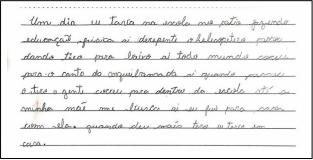 Um dia eu tava na escola no patio fazendo
educação fisica ai derepente o helicoptero passa
dando tiro para baixo ai todo mundo correu
para o canto da arquibancada ai quando parou
o tiro a gente correu para dentro da escola até a
minha mãe me busca ai eu fui para casa
com ela. quando deu mais tiro eu tava em
casa.